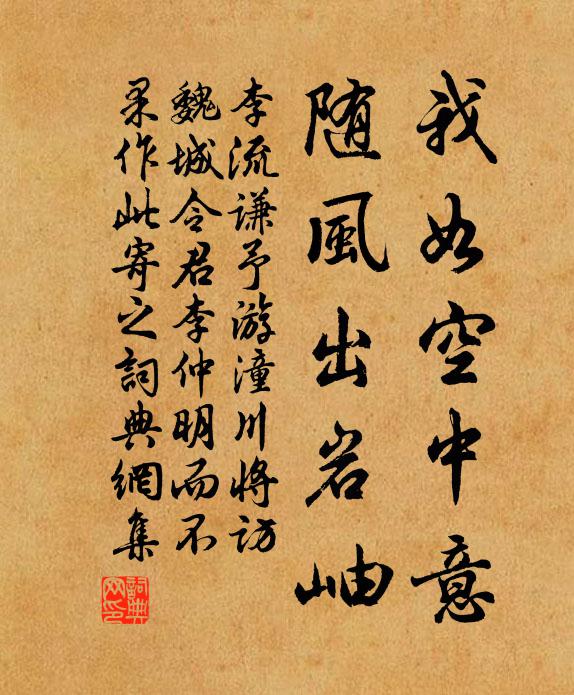 我如空中意
随風出岩岫
李流谦予游潼川将访
魏城令君李仲明而不
果作此寄之詞典網集
詞典
网印